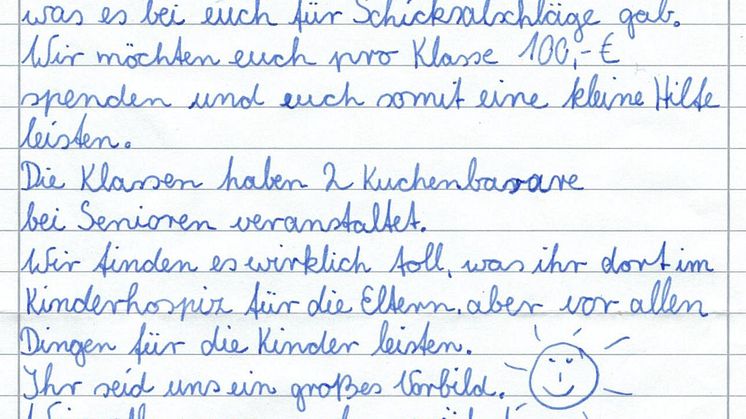 was es bei euch für Schicksalschläge gab.
Wir möchten euch pro Klasse 100,-€
spenden und euch somit eine kleine Hilfe
leisten.
Die Klassen haben 2 Kuchenbasare
bei Senioren veranstaltet.
Wir finden es wirklich toll, was ihr dort im
Kinderhospiz für die Eltern, aber vor allen
Dingen für die Kinder leisten.
Ihr seid uns ein großes Vorbild.